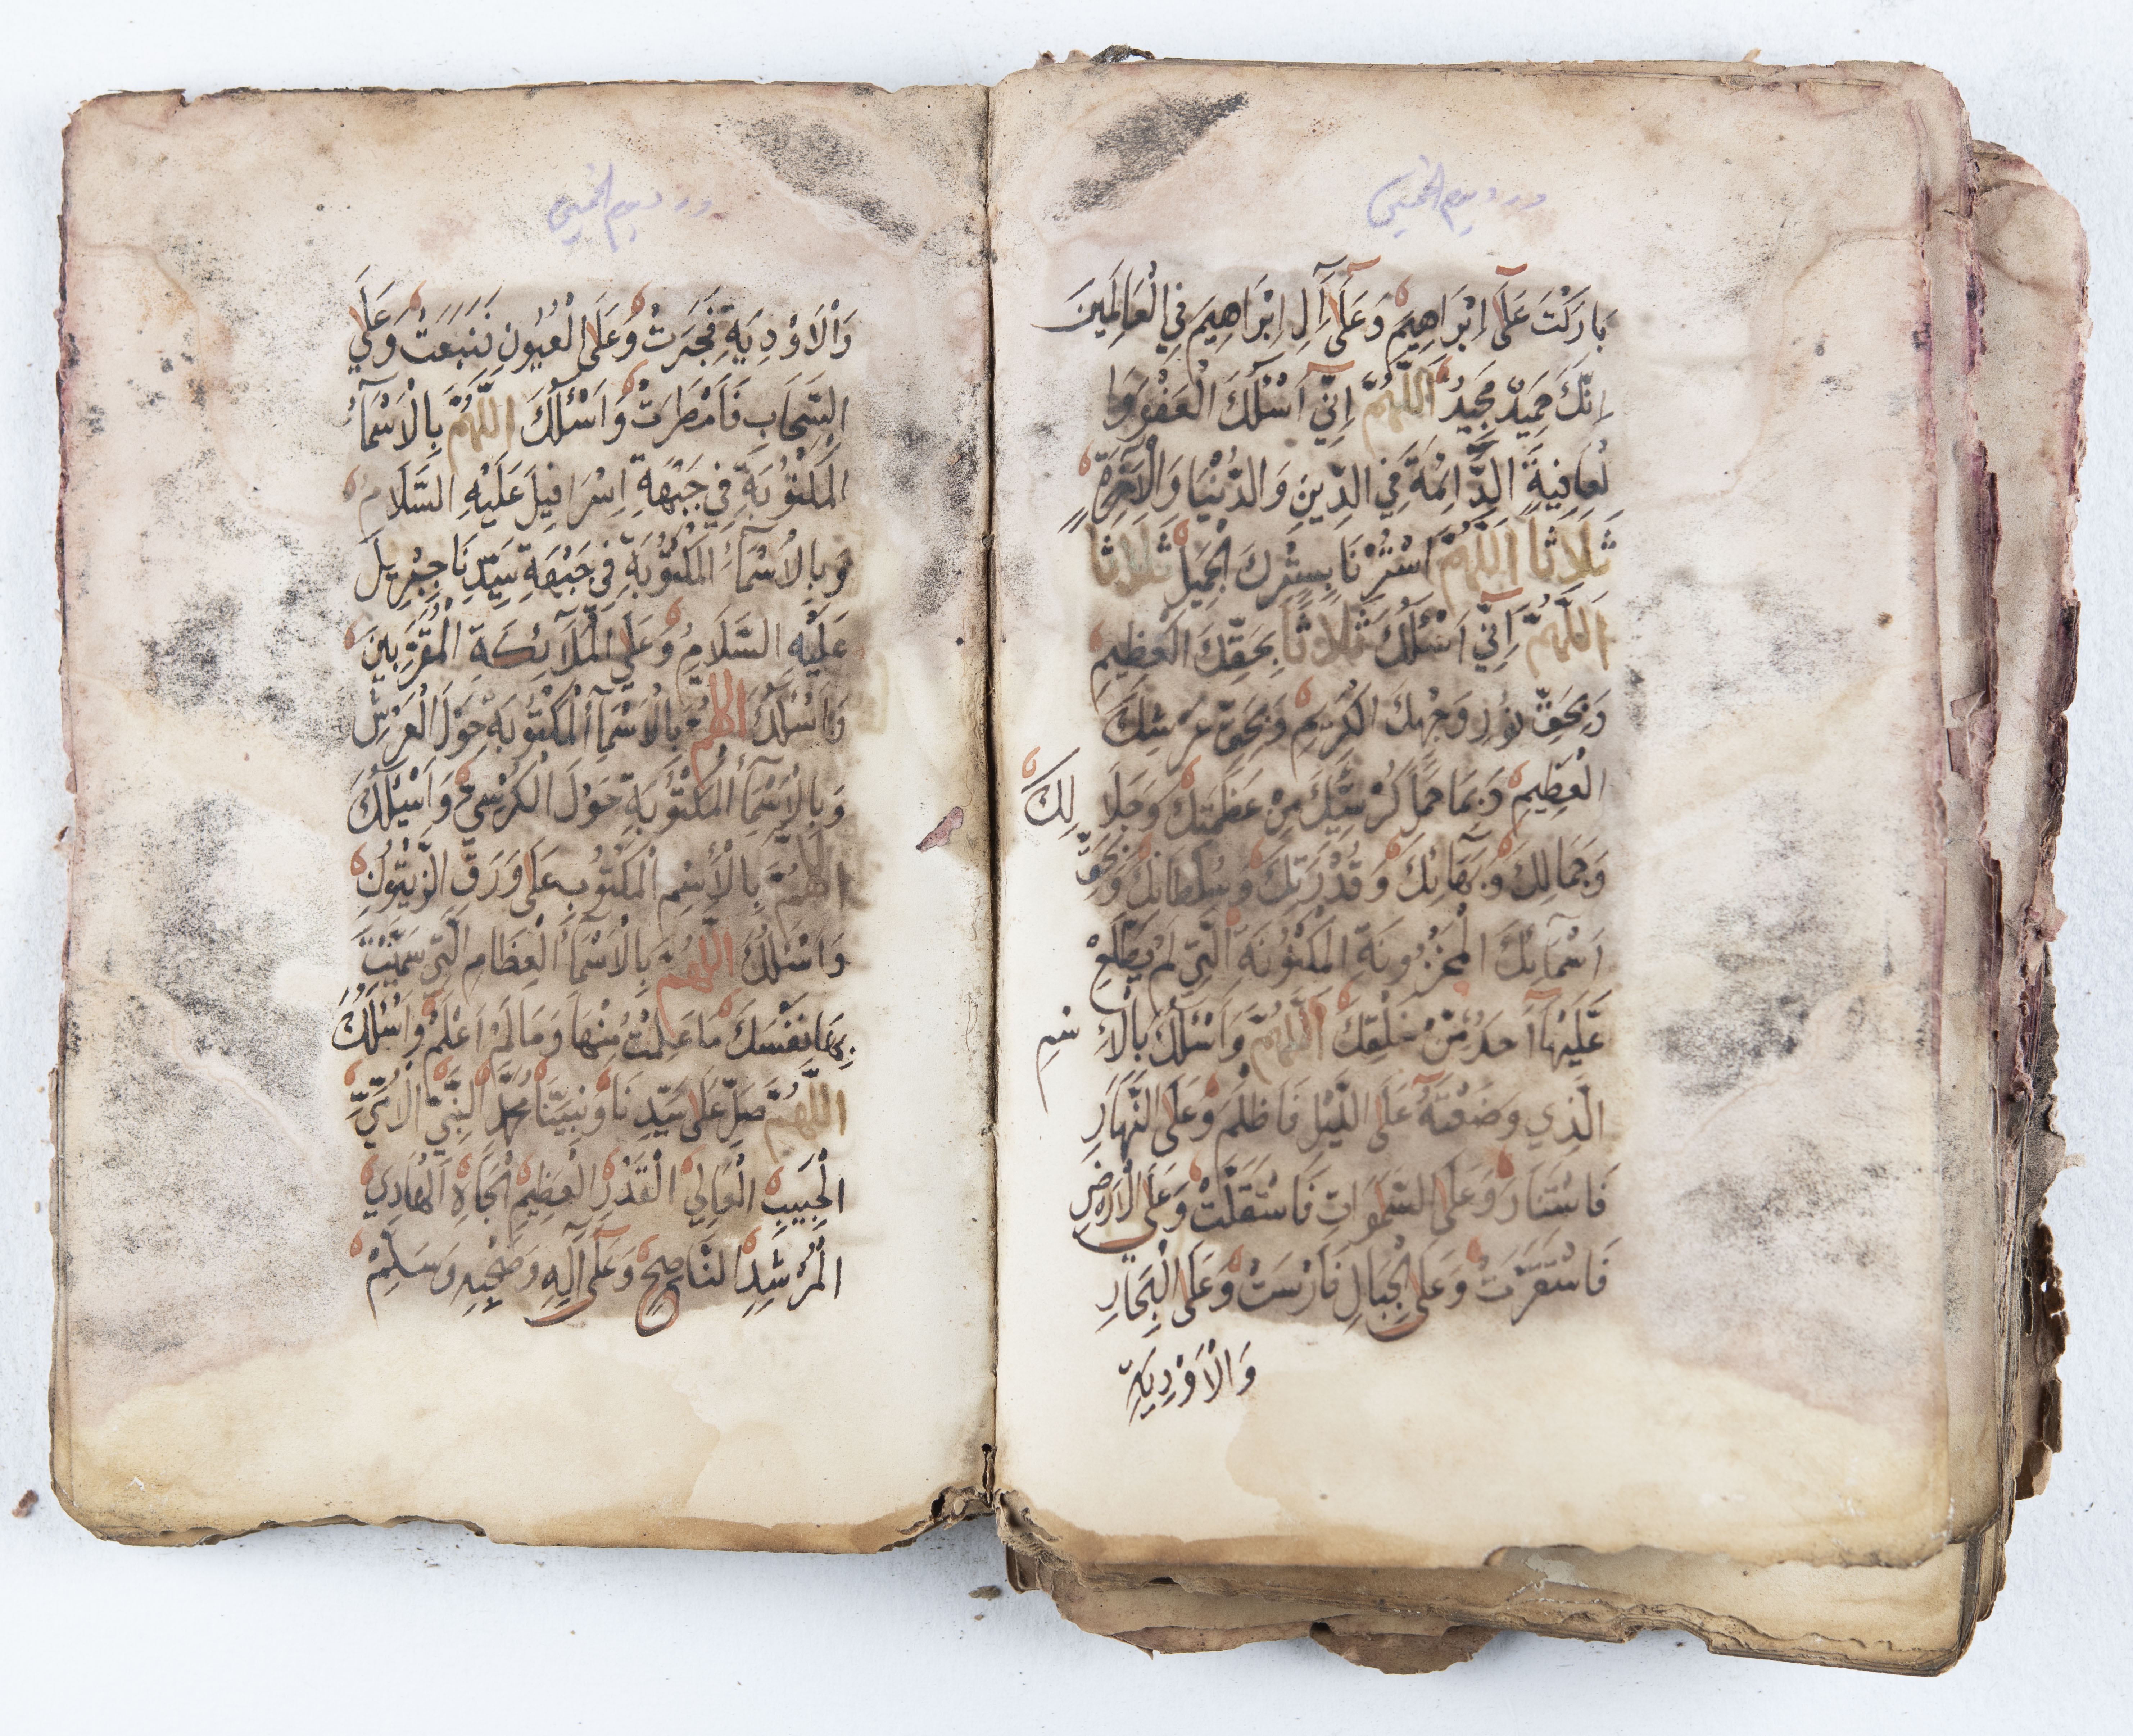 ورد يوم الخميس
بَارَكْتَ عَلَى اِبْرَاهِيمَ وَعَلَى آلِ اِبْرَاهِيمَ فِي الْعَالَمِينَ
اِنَّكَ حَمِيدٌ مَجِيدٌ اَللَّهُمَّ اِنِّي اَسْئَلُكَ الْعَفْوَ وَا
لْعَافِيَةَ الدَّائِمَةَ فِي الدِّينِ وَالدُّنْيَا وَالْآخِرَةِ
ثَلَاثًا اَللَّهُمَّ اسْتُرْنَا بِسِتْرِكَ الْجَمِيلِ ثَلَاثًا
اَللَّهُمَّ اِنِّي اَسْئَلُكَ ثَلَاثًا بِحَقِّكَ الْعَظِيمِ
وَبِحَقِّ نُورِ وَجْهِكَ الْكَرِيمِ وَبِحَقِّ عَرْشِكَ
الْعَظِيمِ وَبِمَا حَمَلَ كُرْسِيُّكَ مِنْ عَظَمَتِكَ وَجَلَا لِكَ
وَجَمَالِكَ وَبَهَائِكَ وَقُدْرَتِكَ وَسُلْطَانِكَ وَبِحَقِّ
اَسْمَآئِكَ الْمَخْزُونَةِ الْمَكْنُونَةِ الَّتِي لَمْ يَطَّلِعْ
عَلَيْهَا اَحَدٌ مِنْ خَلْقِكَ اَللَّهُمَّ وَاَسْئَلُكَ بِالْاِ سْمِ
الَّذِي وَضَعْتَهُ عَلَى اللَّيْلِ فَاَظْلَمَ وَعَلَى النَّهَارِ
فَاسْتَنَارَ وَعَلَى السَّمٰوَاتِ فَاسْتَقَلَّتْ وَعَلَى الْاَرْضِ
فَاسْتَقَرَّتْ وَعَلَى الْجِبَالِ فَاَرْسَتْ وَعَلَى الْبِحَارِ
وَالْاَوْدِيَةِ
ورد يوم الخميس
وَالْاَوْدِيَةِ فَجَرَتْ وَعَلَى الْعُيُونِ فَنَبَعَتْ وَعَلَى
السَّحَابِ فَاَمْطَرَتْ وَاَسْئَلُكَ اللَّهُمَّ بِالْاَسْمَآءِ
الْمَكْتُوبَةِ فِي جَبْهَةِ اِسْرَافِيلَ عَلَيْهِ السَّلَامُ
وَبِالْاَسْمَآءِ الْمَكْتُوبَةِ فِي جَبْهَةِ سَيِّدِنَا جِبْرِيلَ
عَلَيْهِ السَّلَامُ وَعَلَى الْمَلَآئِكَةِ الْمُقَرَّبِينَ
وَاَسْئَلُكَ اللهم بِالْاَسْمَآءِ الْمَكْتُوبَةِ حَوْلَ الْعَرْشِ
وَبِالْاَسْمَآءِ الْمَكْتُوبَةِ حَوْلَ الْكُرْسِيِّ وَاَسْئَلُكَ
اللَّهُمَّ بِالْاِسْمِ الْمَكْتُوبِ عَلَى وَرَقِ الزَّيْتُونِ
وَاَسْئَلُكَ اللَّهُمَّ بِالْاَسْمَآءِ الْعِظَامِ الَّتِي سَمَّيْتَ
بِهَا نَفْسَكَ مَا عَلِمْتُ مِنْهَا وَمَا لَمْ اَعْلَمْ وَاَسْئَلُكَ
اللَّهُمَّ صَلِّ عَلَى سَيِّدِنَا وَنَبِيِّنَا مُحَمَّدٍ النَّبِيِّ الْاُمِّيِّ
الْحَبِيبِ الْعَالِي الْقَدْرِ الْعَظِيمِ الْجَاهِ الْهَادِي
الْمُرْشِدِ النَّاصِحِ وَعَلَى آلِهِ وَصَحْبِهِ وَسَلِّمْ